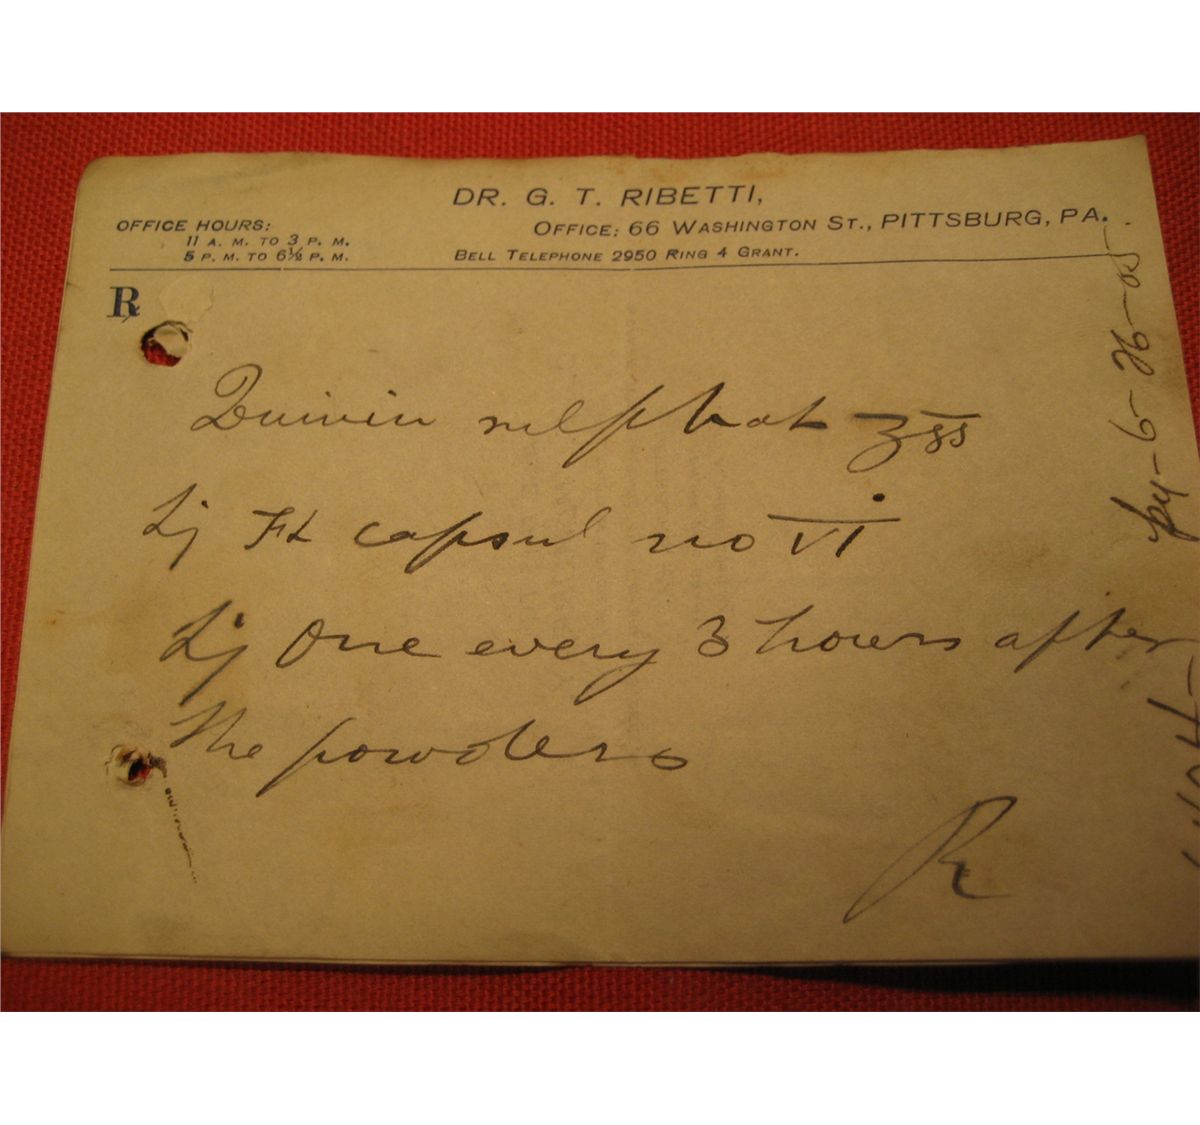 DR. G. T. RIBETTI,
OFFICE HOURS:
11 A. M. TO 3 P. M.
5 P. M. TO 6½ P. M.
OFFICE; 66 WASHINGTON ST., PITTSBURG, PA.
BELL TELEPHONE 2950 RING 4 GRANT.
℞
sulphat ʒss
Ft capsul no VI
One every 3 hours after
the powders
R
6-26-05